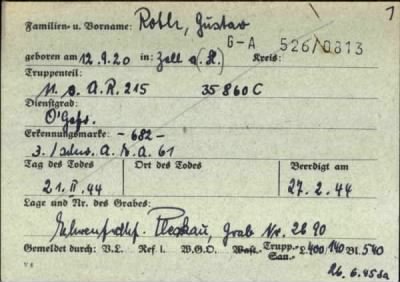 1
Familien- u. Vorname: Roth, Gustav
G-A 526/0813
geboren am 12.9.20 in: Zell a/ Kreis:
Truppenteil:
A.R. 215 35860 C
Dienstgrad:
O'Gefr.
Erkennungsmarke: -682-
3./schw. A. A. 61
Tag des Todes Ort des Todes Beerdigt am
21. II. 44 27.2.44
Lage und Nr. des Grabes:
Ehrenfrdhf. Pleskau, Grab Nr. 2690
Gemeldet durch: V.L. Ref I. W.G.O. Wast. Trupp. San. L. 400/140 Bl. 540
26.6.45